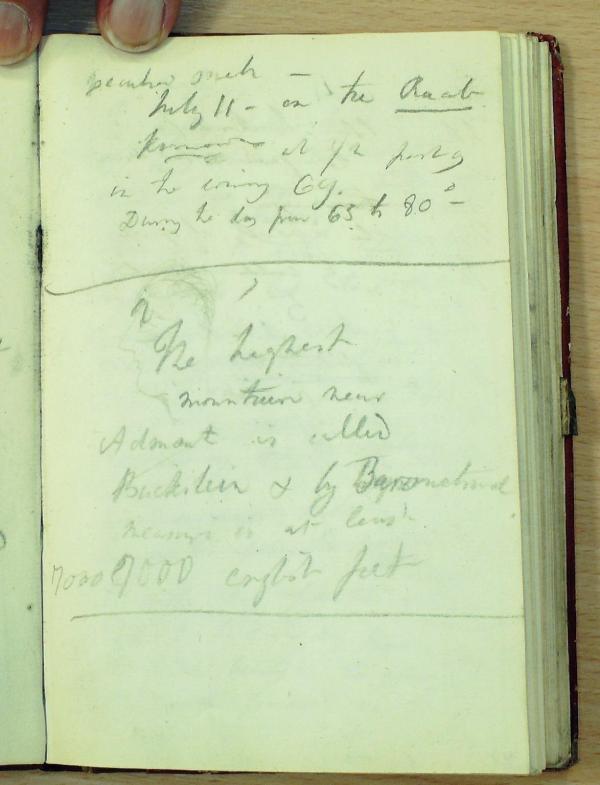 peculiar smell —
July 11 – on the
at 9h past 9
in the evening 69.
During the day from 63 to 80° –
The highest
mountain near
Admont is called
Buckstein & by Barometrical
measure is at least
7000 7000 english feet